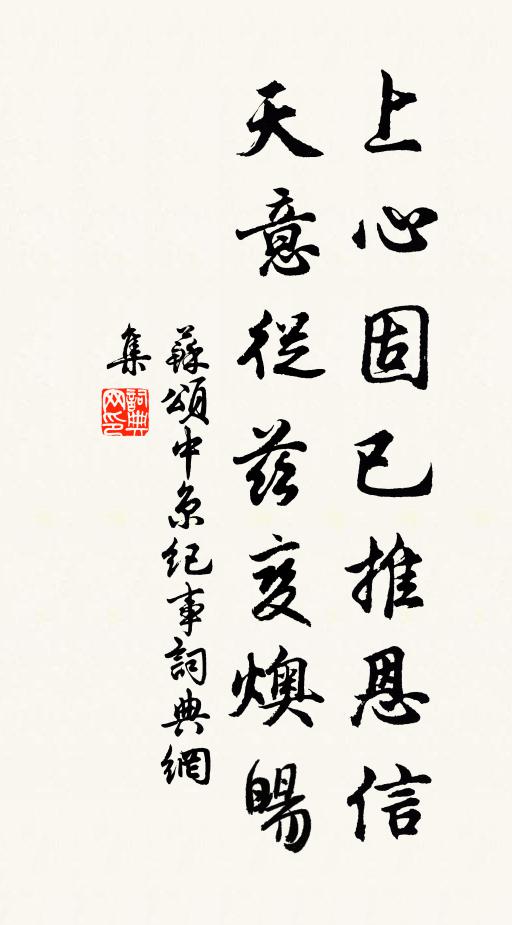 上心固已推恩信
天意從茲变燠暘
蘇頌中京纪事詞典網
集
詞典
网印